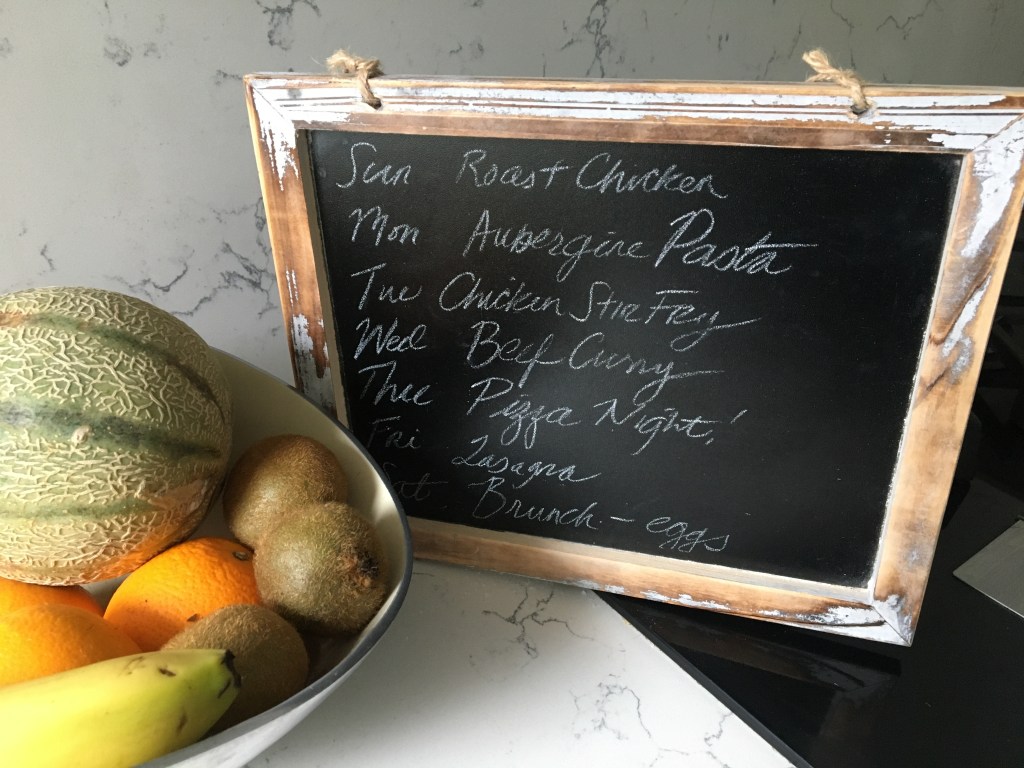 Sun Roast Chicken
Mon Aubergine Pasta
Tue Chicken Stir Fry
Wed Beef Curry
Thu Pizza Night!
Fri Lasagna
Sat Brunch - eggs